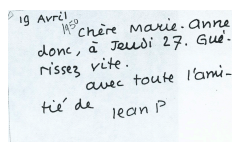 19 Avril
1950 Chère Marie-Anne
donc, à Jeudi 27. Gué-
rissez vite.
avec toute l'ami-
tié de Jean P